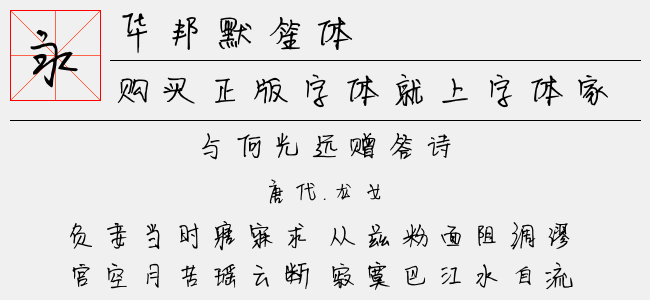 永
华邦默笙体
购买正版字体就上字体家
与何光远赠答诗
唐代.龙女
负妾当时寤寐求 从兹粉面阻绸缪
宫空月苦瑶云断 寂寞巴江水自流